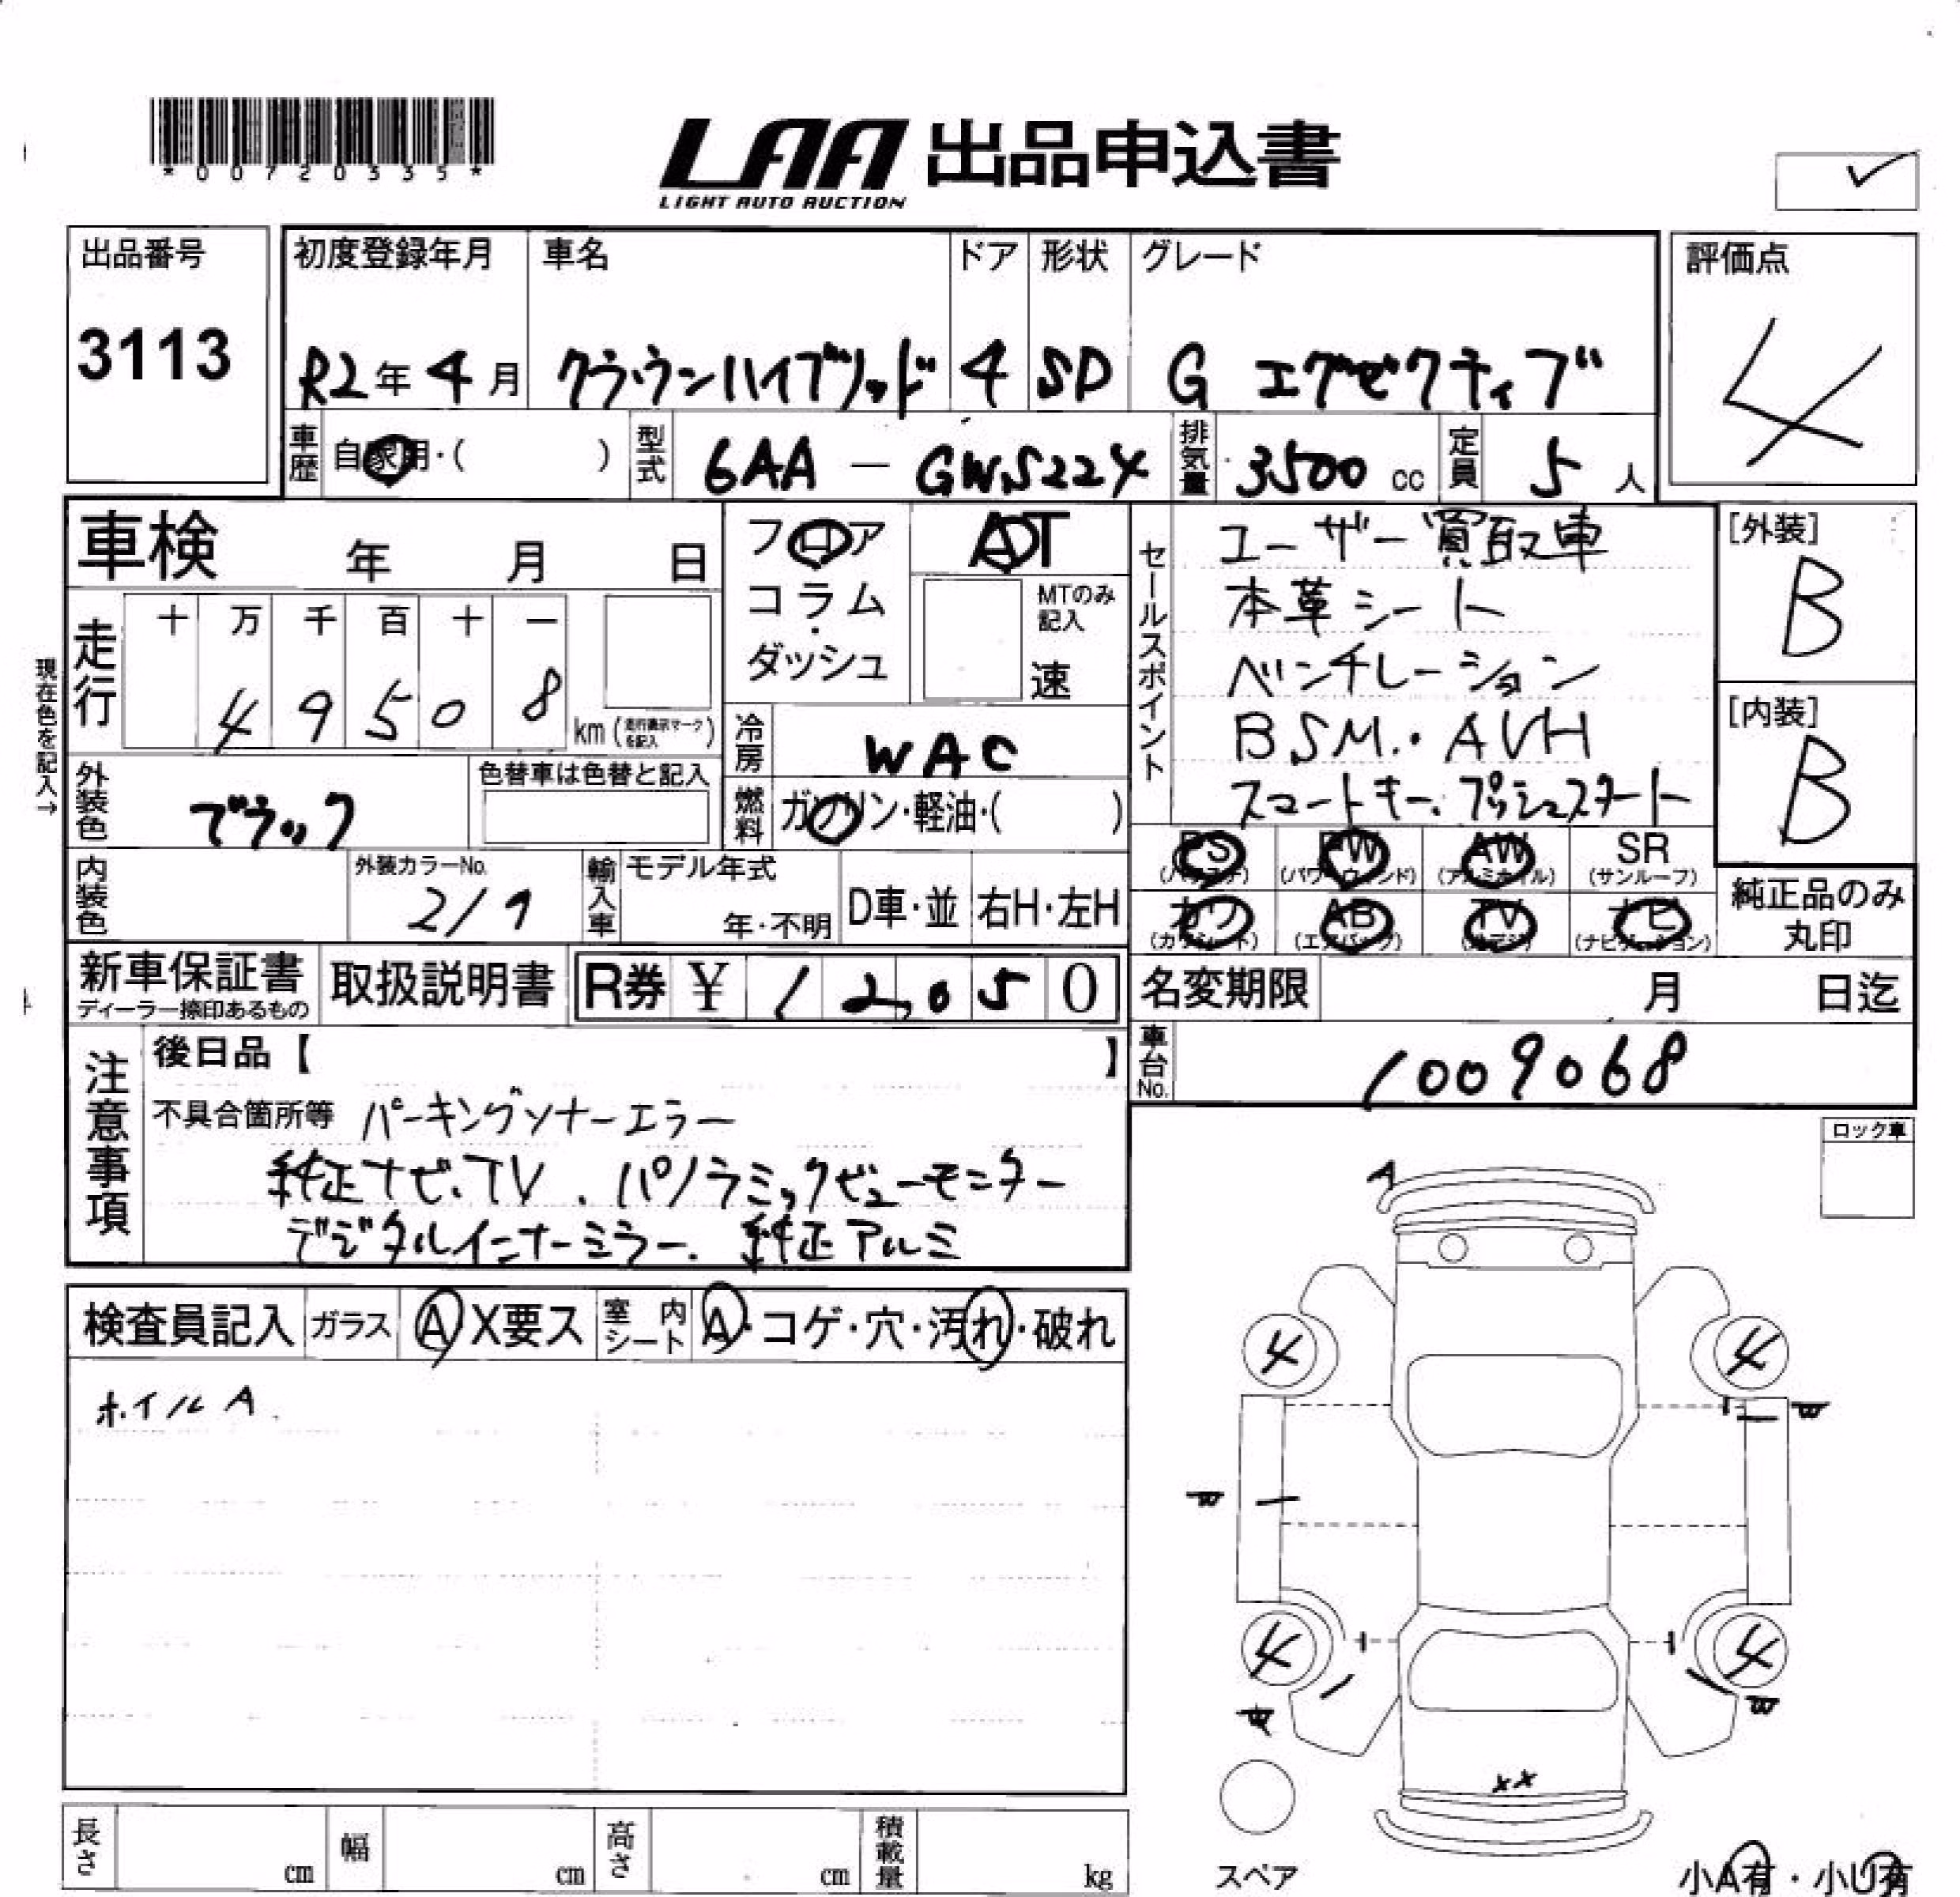 *00720335*
LAA 出品申込書
LIGHT AUTO AUCTION
出品番号
3113
初度登録年月 車名 ドア 形状 グレード
R2年4月 クラウンハイブリッド 4 SD G エグゼクティブ
評価点
4
車歴 自家用・( ) 型式 6AA - GWS224 排気量 3500 cc 定員 5 人
車検 年 月 日
フロア
コラム・
ダッシュ
AT
MTのみ
記入
速
現在色を記入→
走行 十 万 千 百 十 一
4 9 5 0 8 km (走行表示マークを記入)
冷房 WAC
燃料 ガソリン・軽油・( )
外装色 ブラック 色替車は色替と記入
内装色 外装カラーNo. 219
輸入車 モデル年式
年・不明 D車・並 右H・左H
セールスポイント
ユーザー買取車
本革シート
ベンチレーション
BSM.・AVH
スマートキー.プッシュスタート
[外装]
B
[内装]
B
PS PW AW SR
(パワステ) (パワーウィンド) (アルミホイル) (サンルーフ)
カワ AB TV ナビ
(カワシート) (エアバック) (ナビゲーション)
純正品のみ
丸印
新車保証書
ディーラー捺印あるもの
取扱説明書 R券 ¥ 12050
名変期限 月 日迄
車台No. 1009068
注意事項
後日品【 】
不具合箇所等 パーキングソナーエラー
純正ナビ.TV.パノラミックビューモニター
デジタルインナーミラー. 純正アルミ
ロック車
A
検査員記入 ガラス A X要ス 室内シート A・コゲ・穴・汚れ・破れ
ホイルA.
4 4
W
W
4 4
W W
XX
スペア
長さ cm 幅 cm 高さ cm 積載量 kg
小A有・小U有